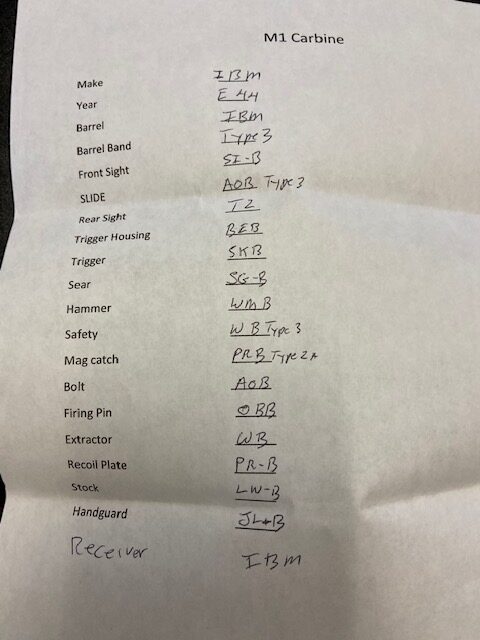 M1 Carbine
Make IBM
Year E 44
Barrel IBM
Barrel Band Type 3
Front Sight SI-B
SLIDE AOB Type 3
Rear Sight I2
Trigger Housing BEB
Trigger SKB
Sear SG-B
Hammer WMB
Safety WB Type 3
Mag catch PRB Type 2A
Bolt AOB
Firing Pin OBB
Extractor WB
Recoil Plate PR-B
Stock LW-B
Handguard JL-B
Receiver IBM